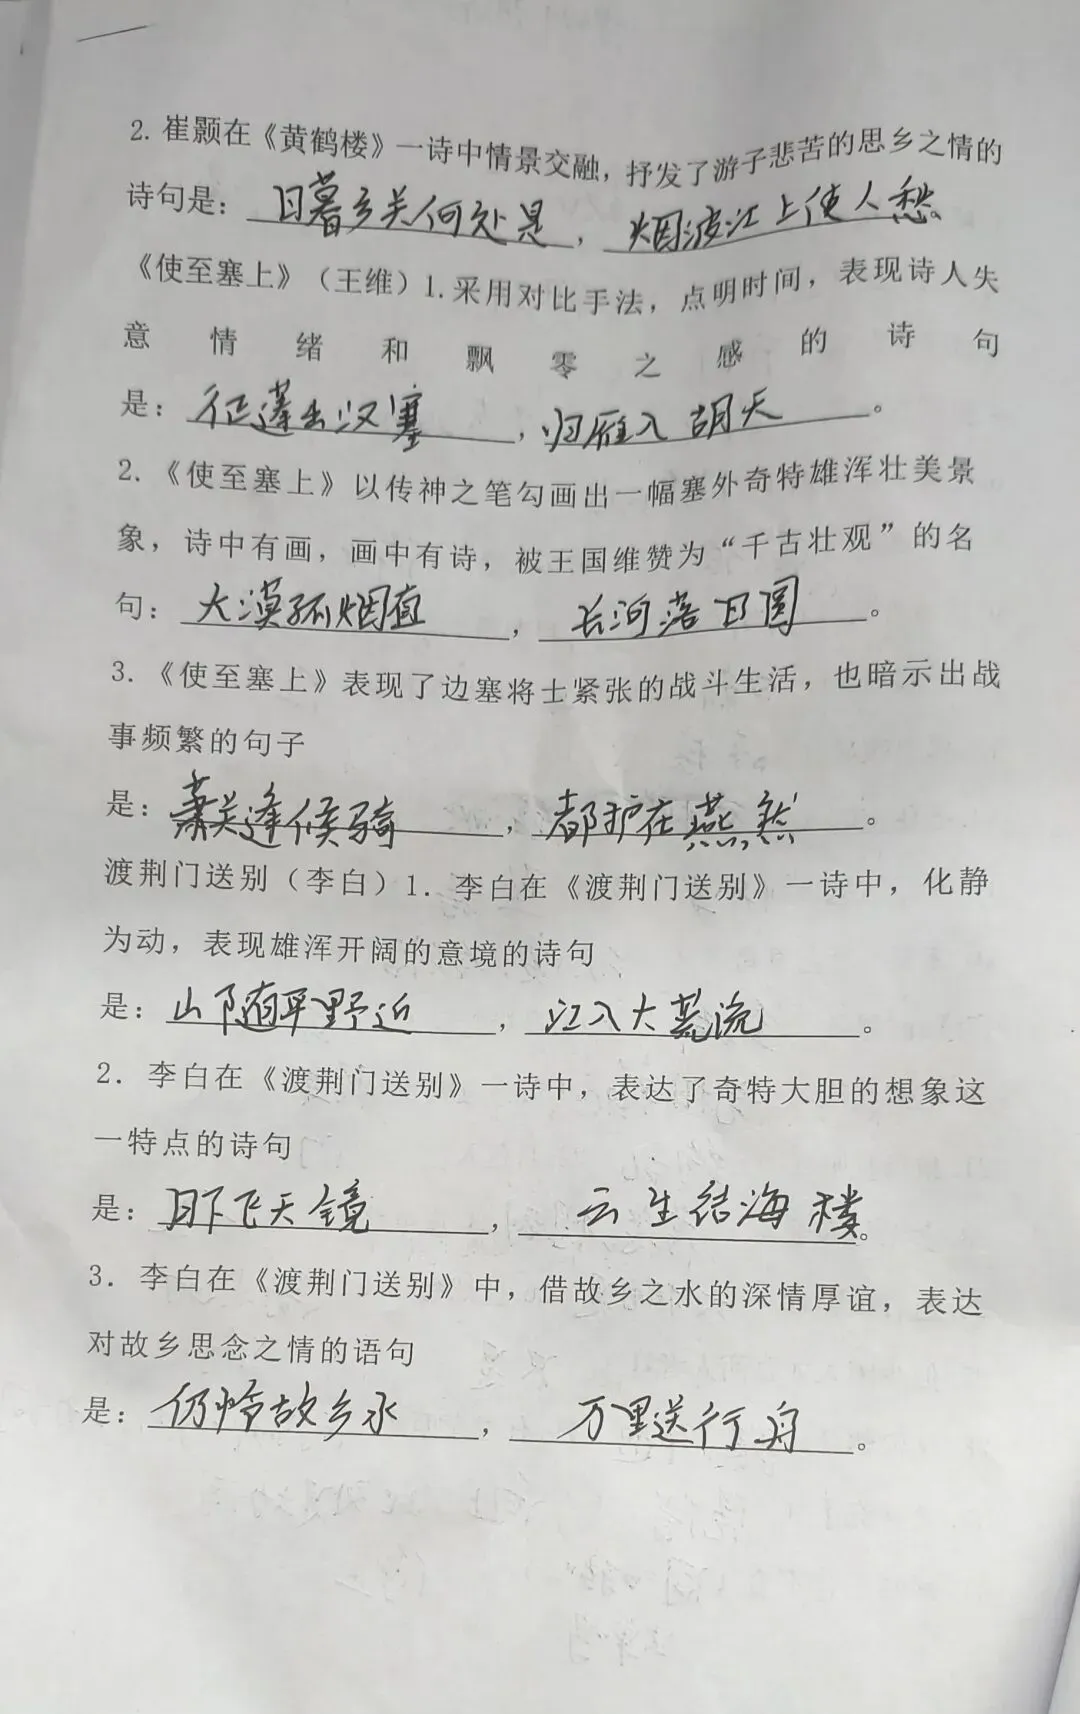 2. 崔颢在《黄鹤楼》一诗中情景交融，抒发了游子悲苦的思乡之情的
诗句是：日暮乡关何处是，烟波江上使人愁。
《使至塞上》（王维）1.采用对比手法，点明时间，表现诗人失
意情绪和飘零之感的诗句
是：征蓬出汉塞，归雁入胡天。
2.《使至塞上》以传神之笔勾画出一幅塞外奇特雄浑壮美景
象，诗中有画，画中有诗，被王国维赞为“千古壮观”的名
句：大漠孤烟直，长河落日圆。
3.《使至塞上》表现了边塞将士紧张的战斗生活，也暗示出战
事频繁的句子
是：萧关逢候骑，都护在燕然。
渡荆门送别（李白）1. 李白在《渡荆门送别》一诗中，化静
为动，表现雄浑开阔的意境的诗句
是：山随平野近，江入大荒流。
2. 李白在《渡荆门送别》一诗中，表达了奇特大胆的想象这
一特点的诗句
是：月下飞天镜，云生结海楼。
3. 李白在《渡荆门送别》中，借故乡之水的深情厚谊，表达
对故乡思念之情的语句
是：仍怜故乡水，万里送行舟。